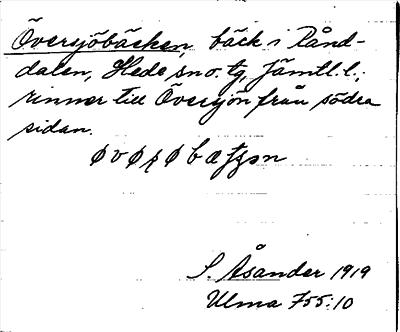 Översjöbäcken, bäck i Rånd-
dalen, Hede sn o. tg, Jämtl. l.;
rinner till Översjön från södra
sidan.
S. Åsander 1919
Ulma 755:10